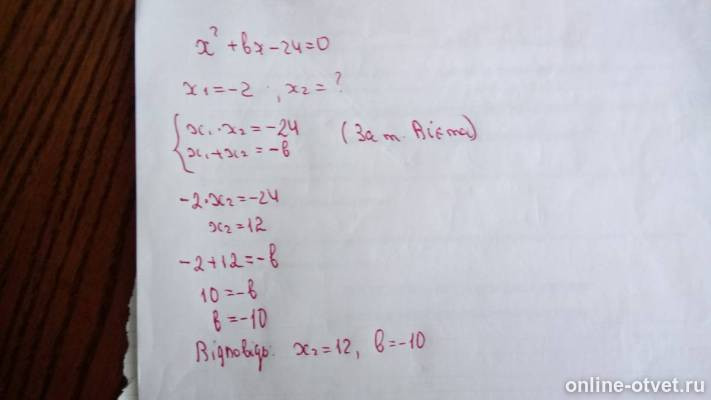 x² + bx - 24 = 0
x₁ = -2 ; x₂ = ?
{ x₁ · x₂ = -24 (За т. Вієта)
x₁ + x₂ = -b
-2 · x₂ = -24
x₂ = 12
-2 + 12 = -b
10 = -b
b = -10
Відповідь: x₂ = 12, b = -10
online-otvet.ru